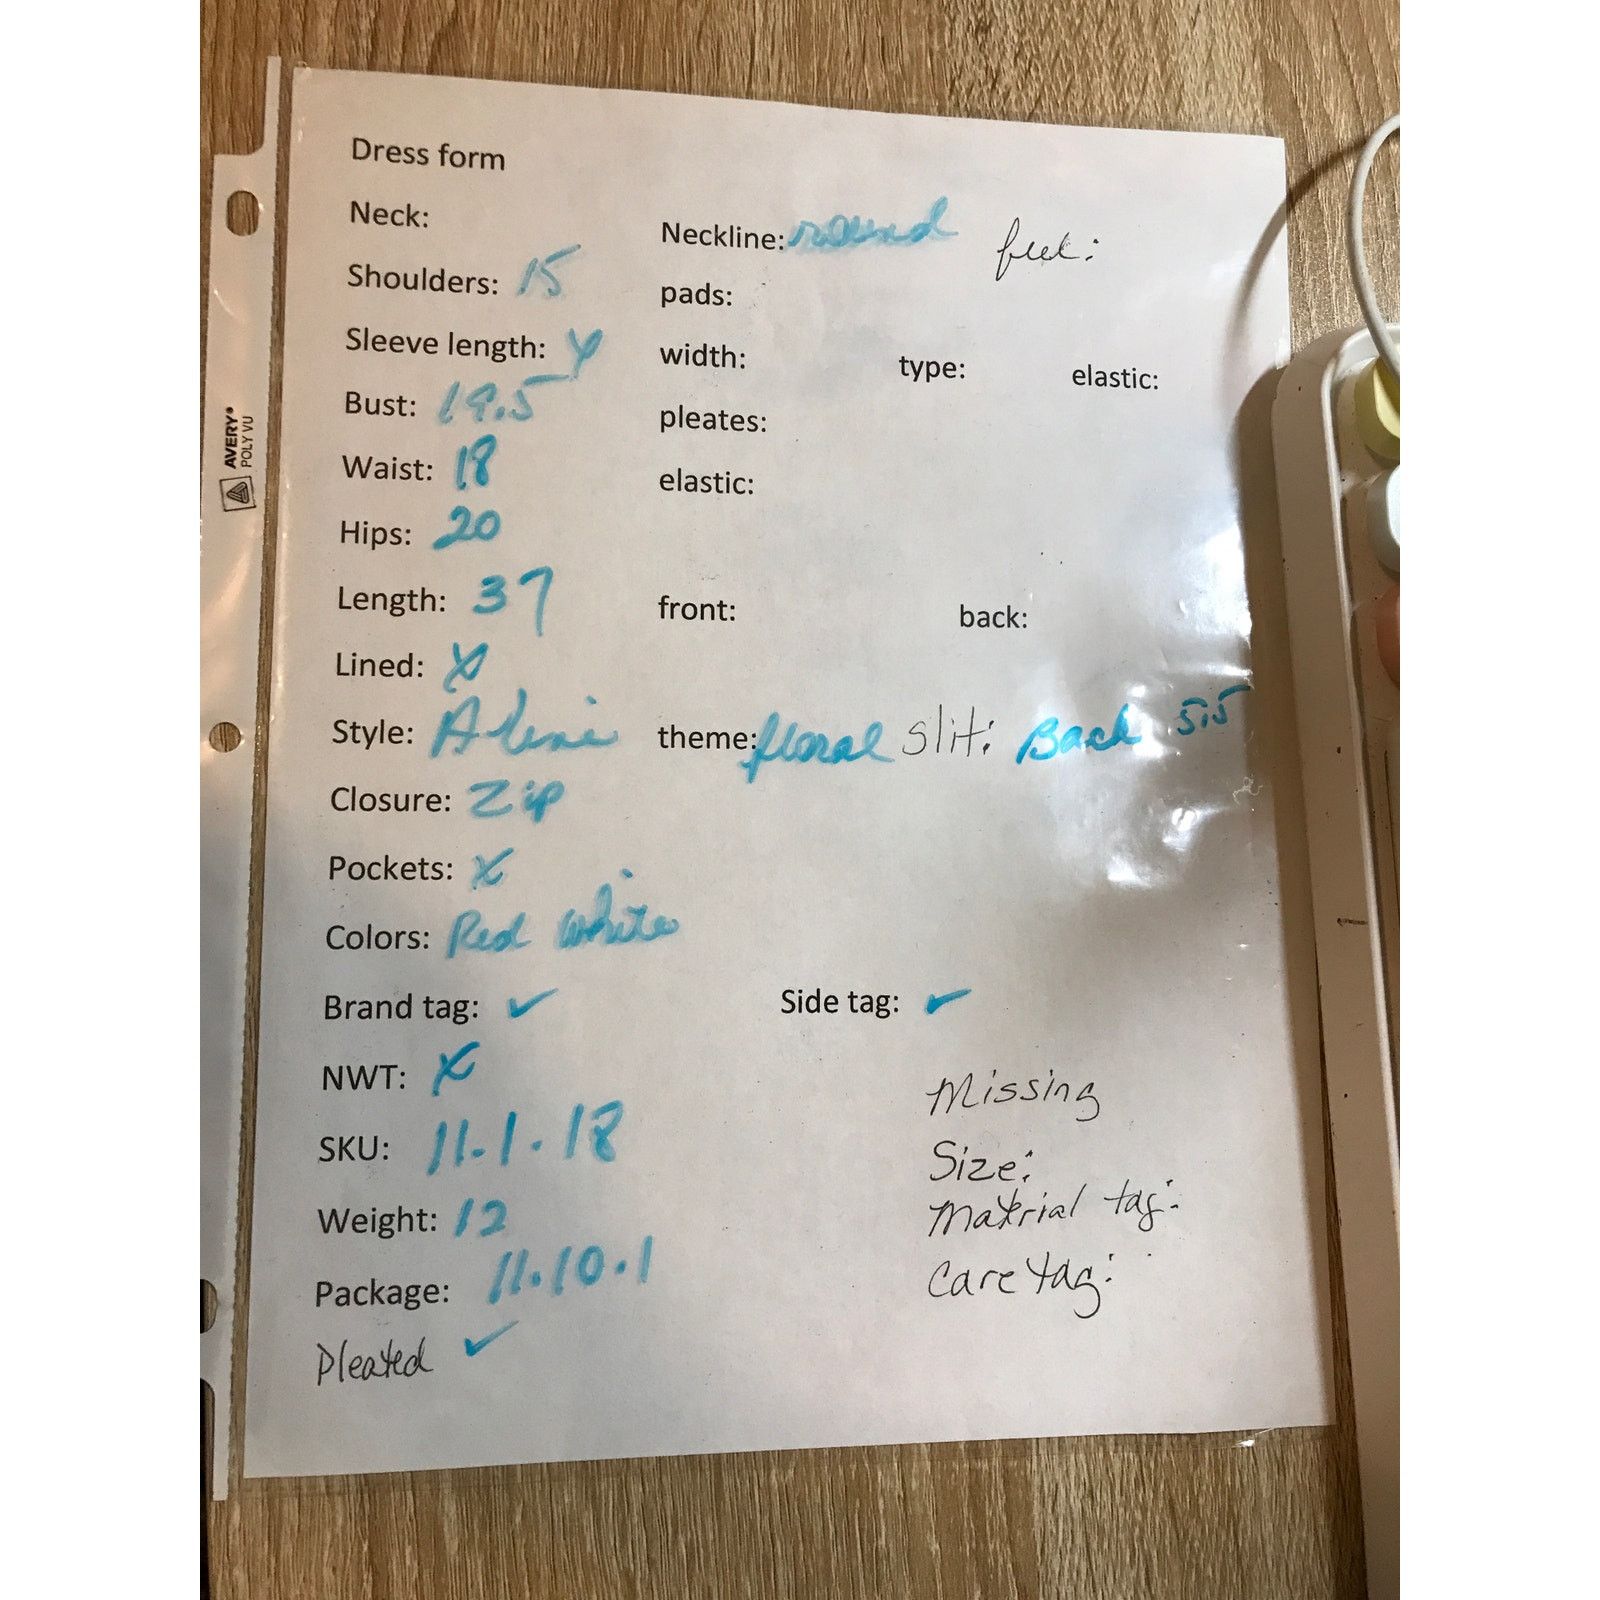 Dress form
Neck: Neckline: round feel:
Shoulders: 15 pads:
Sleeve length: width: type: elastic:
Bust: 19.5 pleates:
Waist: 18 elastic:
Hips: 20
Length: 37 front: back:
Lined: X
Style: A line theme: floral slit: Back 5.5
Closure: Zip
Pockets: X
Colors: Red white
Brand tag: ✓ Side tag: ✓
NWT: X
Missing
SKU: 11.1.18
Size:
Weight: 12 Matrial tag:
Package: 11.10.1 Care tag:
Pleated ✓
AVERY®
POLY VU